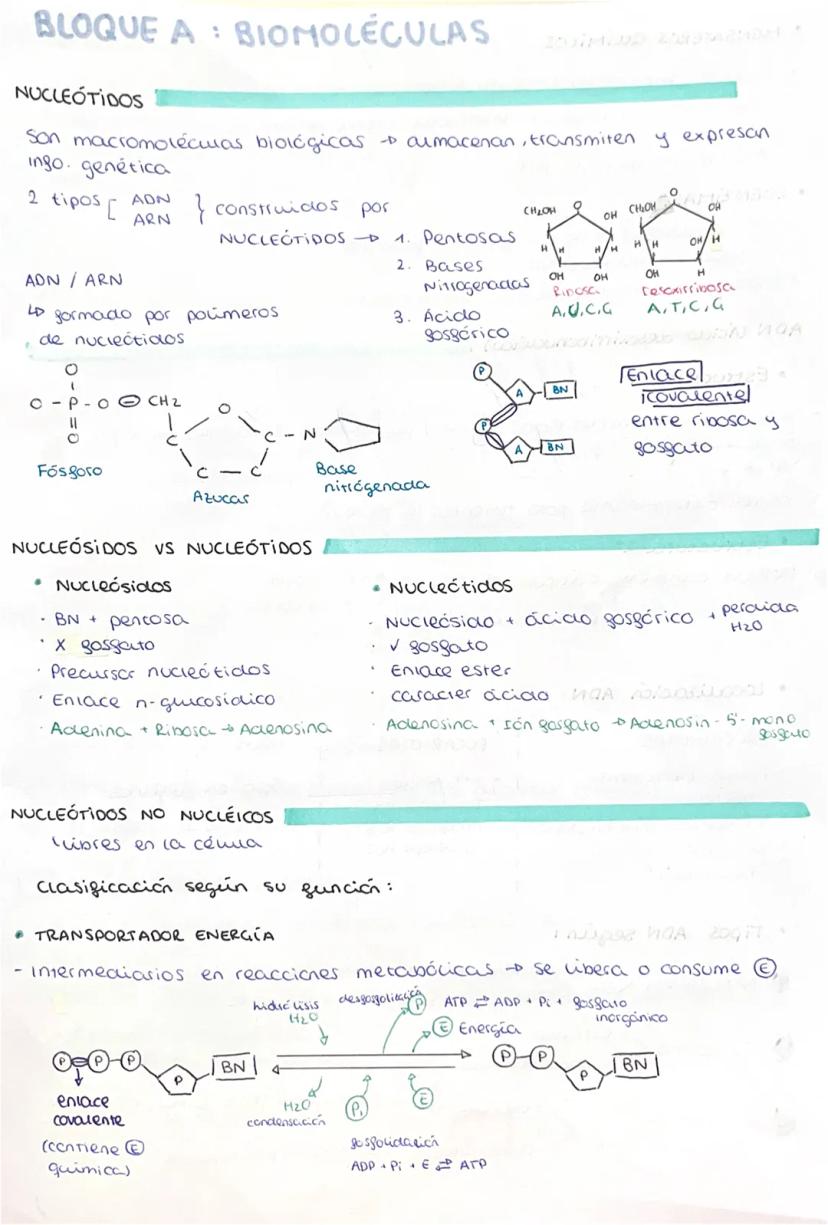 BLOQUE A : BIOMOLÉCULAS
NUCLEÓTIDOS
Son macromoléculas biológicas → almacenan, transmiten y expresan
info. genética
2 tipos [ ADN
ARN } construidos por
NUCLEÓTIDOS → 1. Pentosas
2. Bases
Nitrogenadas
3. Ácido
fosfórico
CH2OH O OH
H H H H
OH OH
Ribosa
A, U, C, G
CH2OH O OH
H H OH H
OH H
Desoxirribosa
A, T, C, G
ADN / ARN
↳ formado por polímeros
de nucleótidos
O
O - P - O ⊖ CH2
O
Fósforo
O
C C - N
C - C
Azucar
Base
nitrógenada
P
A BN
P
A BN
Enlace
covalente
entre ribosa y
fosfato
NUCLEÓSIDOS VS NUCLEÓTIDOS
• Nucleósidos
· BN + pentosa
· X fosfato
· Precursor nucleótidos
· Enlace n-glucosídico
· Adenina + Ribosa → Adenosina
• Nucleótidos
· Nucleósido + ácido fosfórico + perdida
H2O
· √ fosfato
· Enlace ester
· caracter ácido
· Adenosina + Ión fosfato → Adenosin - 5' - mono
fosfato
NUCLEÓTIDOS NO NUCLÉICOS
libres en la célula
Clasificación según su función:
• TRANSPORTADOR ENERGÍA
- Intermediarios en reacciones metabólicas → se libera o consume Ⓔ
hidrólisis
H2O
P
E Energía
ATP ⇄ ADP + Pi + fosfato
inorgánico
P P P
P BN
enlace
covalente
(contiene Ⓔ
química)
H2O
condensación
Pi
E
ADP + Pi + E ⇄ ATP
P P
P BN